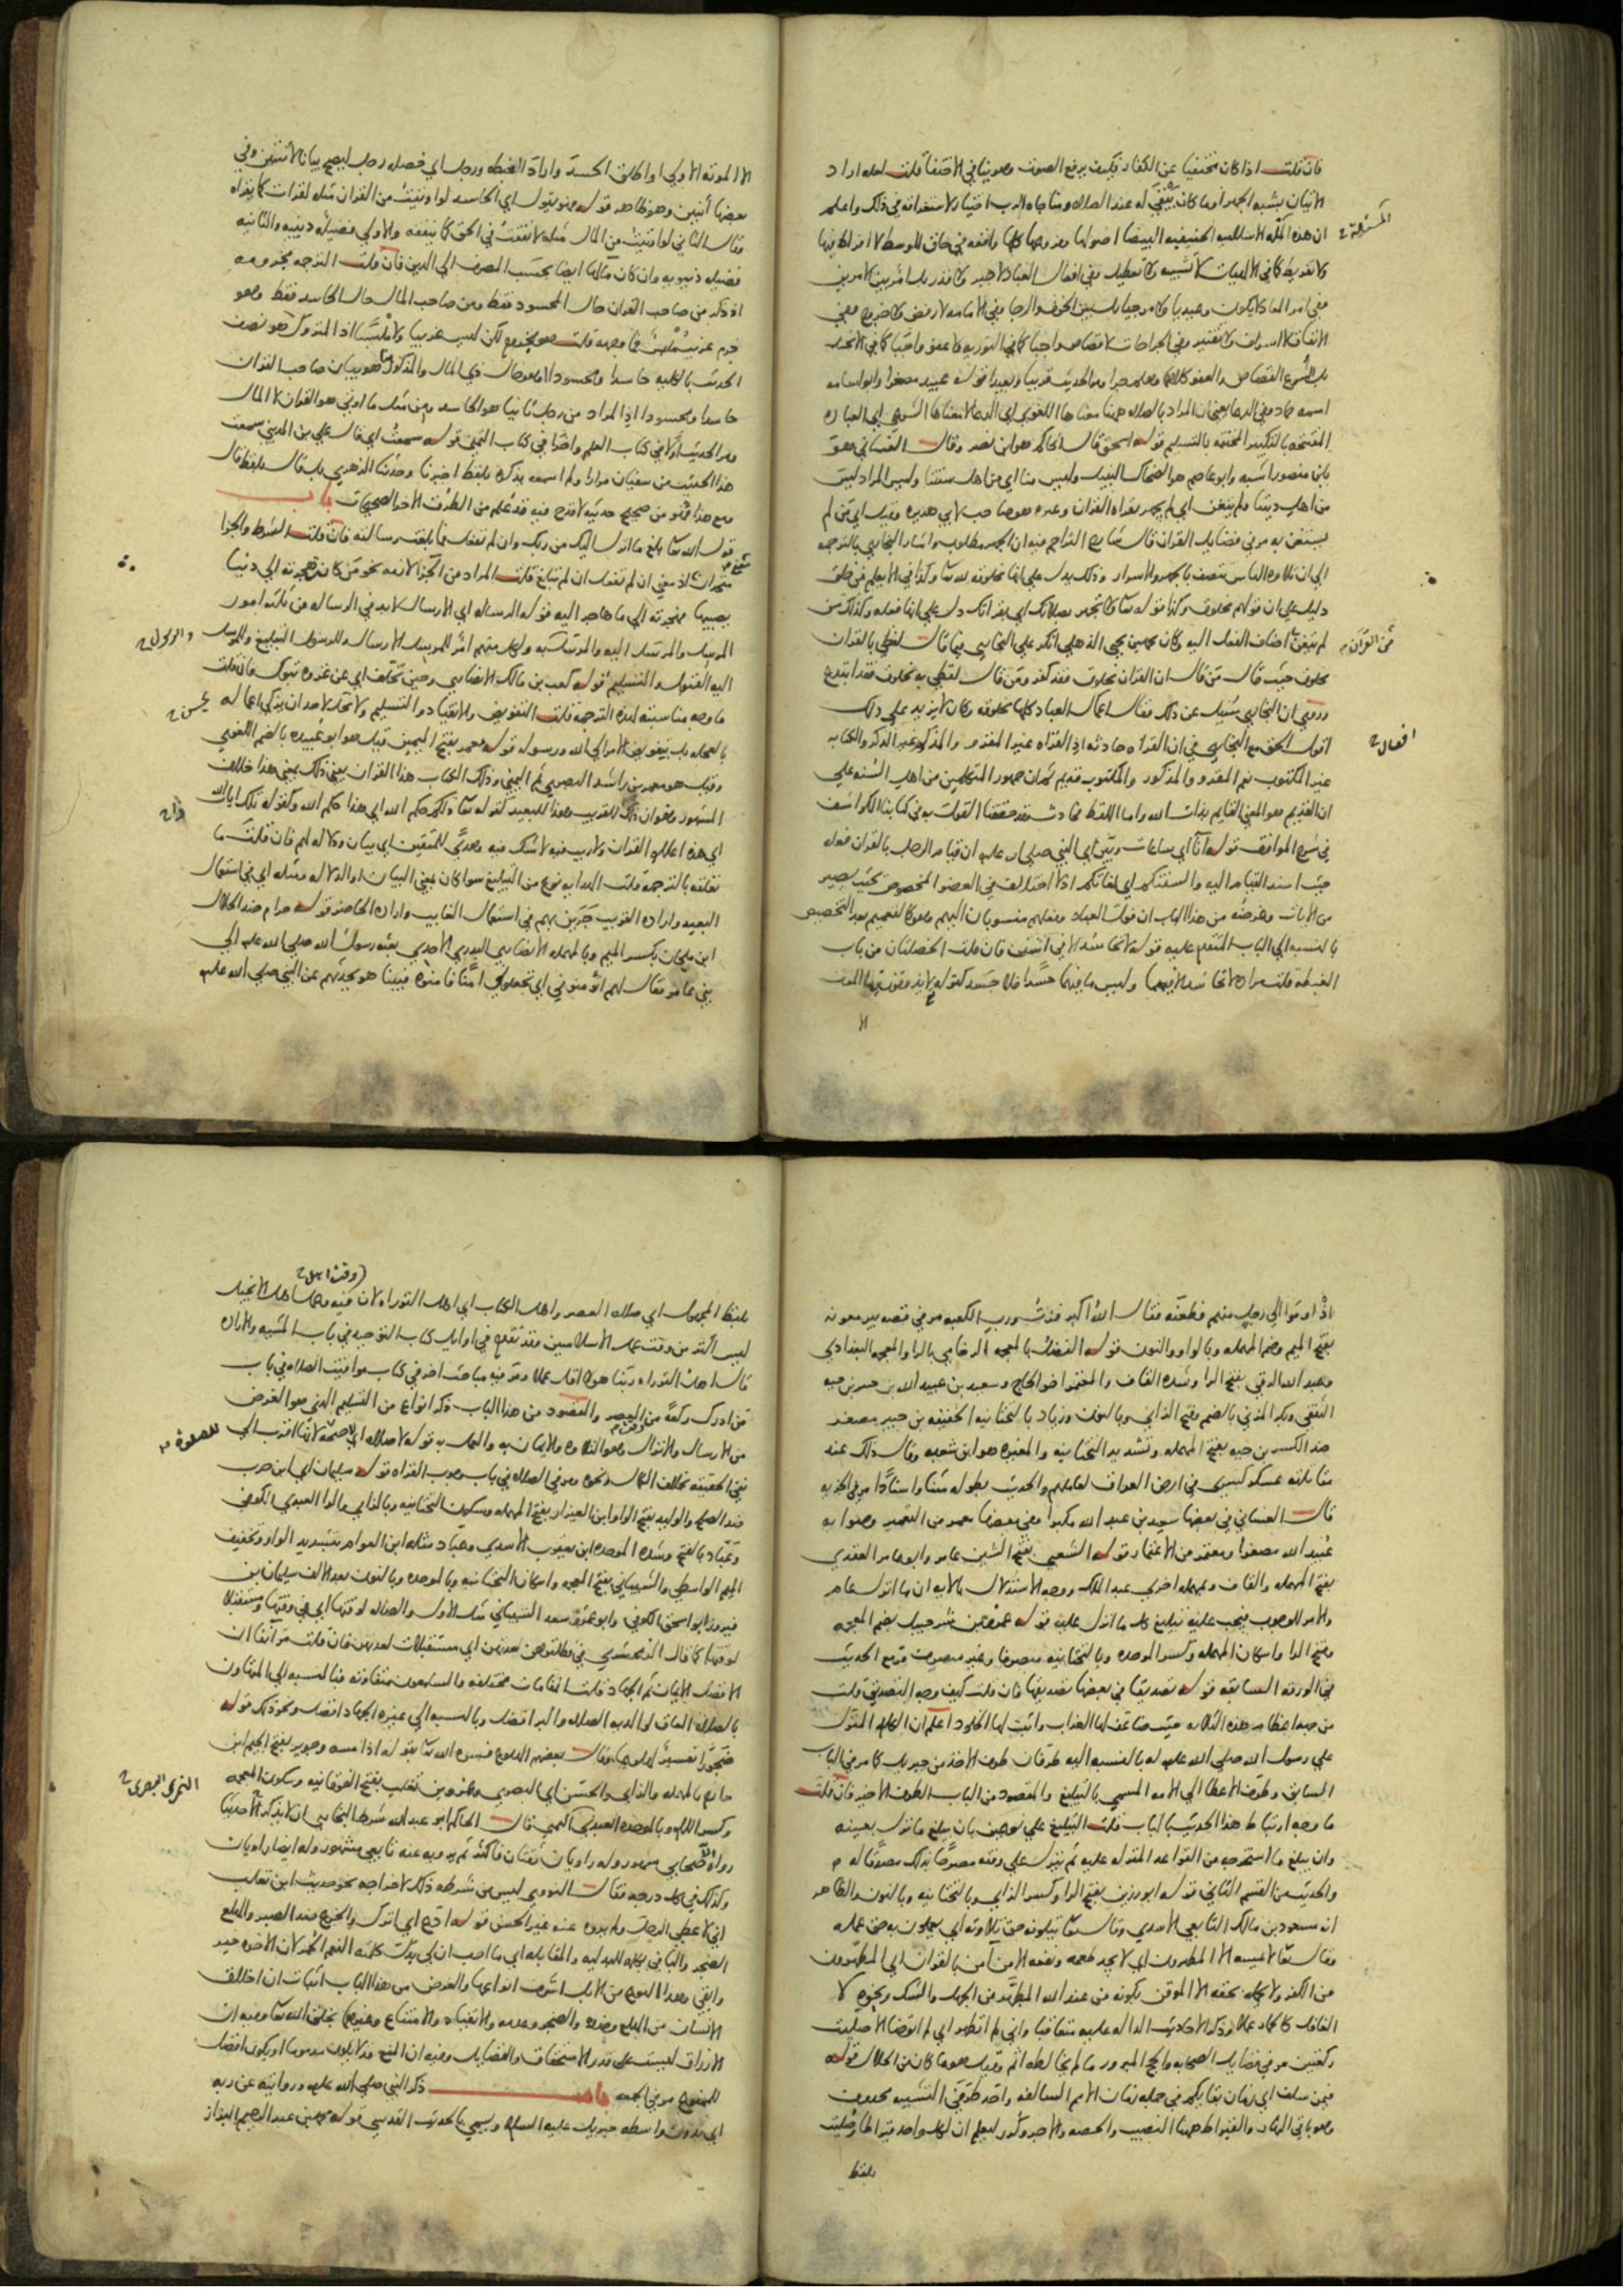 فان قلت اذا كان مختفيا عن الكفار فكيف يرفع الصوت وهو ينافي الاختفا قلت لعله اراد
الاتيان بشبه الجهر او ما كان يبقى له عند الصلاه ومناجاه الرب اختيار لاستغراقه في ذلك واعلم
ان هذه الملة الاسلاميه الحنيفيه البيضا اصولها وفروعها كلها واقعه في حاق الوسط لا افراط فيها
المسئلة
ولا تفريط كما في الالهيات لا تشبيه ولا تعطيل وفي افعال العباد لا جبر ولا قدر بل امر بين الامرين
وفي امر المعاد لا يكون وعيديا ولا مرجيا بل بين الخوف والرجا وفي الامامه لا رفض ولا خروج وفي
الانفاق لا اسراف ولا تقتير وفي الجراحات لا قصاص واجبا كما في التوريه ولا عفو واجبا كما في الانجيل
بل شرع القصاص والعفو كلاهما وهلم جرا ومر الحديث قريبا وبعيدا قوله عبيد مصغرا وابو اسامه
اسمه حماد وفي الدعا يعني ان المراد بالصلاه ههنا معناها اللغوي اي الدعا لا معناها الشرعي اي العباره
المفتتحه بالتكبير المختتمه بالتسليم قوله اسحق قال الحاكم هو ابن نصر وقال الغساني هو
بابن منصور اشبه وابو عاصم هو الضحاك النبيل وليس منا اي من اهل سنتنا وليس المراد ليس
من اهل ديننا ولم يتغن اي لم يجهر بقراه القران وغيره هو صاحب لابي هريره وقيل اي من لم
يستغن به مر في فضايل القران قال شارح التراجم فيه ان الجهر مطلوب واشار البخاري بالترجمه
الى ان تلاوه الناس تتصف بالجهر والاسرار وذلك يدل على انها مخلوقه لله تعا وكذا في الا يعلم من خلق
دليل على ان قولهم مخلوق وكذا قوله تعا ولا تجهر بصلاتك اي بقراتك دل على انها فعله وكذلك من
لم يتغن اضاف الفعل اليه وكان محمد بن يحيى الذهلي انكر على البخاري فيما قال لفظي بالقران
من القرآن
مخلوق حيث قال من قال ان القران مخلوق فقد كفر ومن قال لفظي به مخلوق فقد ابتدع
وروي ان البخاري سئل عن ذلك فقال اعمال العباد كلها مخلوقه وكان لا يزيد على ذلك
اقول الحق مع البخاري في ان القراه حادثه اذ القراه غير المقرو والمذكور غير الذكر والكتابه
افعال
غير المكتوب نعم المقرو والمذكور والمكتوب قديم ثم ان جمهور المتكلمين من اهل السنه على
ان القديم هو المعنى القايم بذات الله واما اللفظ فحادث وقد حققنا القول به في كتابنا الكواشف
في شرح المواقف قوله آنا اي ساعات وبين اي النبي صلى الله عليه ان قيام الرجل بالقران فعله
حيث اسند القيام اليه والسنتكم اي لغاتكم اذ لا اختلاف في العضو المخصوص بحيث يصير
من الايات وغرضه من هذا الباب ان قول العباد وفعلهم منسوبان اليهم وهو كالتعميم بعد التخصيص
بالنسبه الى الباب المتقدم عليه قوله لا تحاسد الا في اثنتين فان قلت الخصلتان من باب
الغبطه قلت مراده لا تحاسد الا فيهما وليس ما فيهما حسدا فلا حسد كقوله لا يذوقون فيها الموت
الا
الا الموته الاولى او اطلق الحسد واراد الغبطه ورجل اي خصله رجل ليصح بيانا لاثنتين وفي
بعضها اثنين وهو ظاهر قوله فهو يقول اي الحاسد لو اوتيت من القران مثله لقرات كما يقراه
وقال الثاني لو اوتيت من المال مثله لانفقت في الحق كما ينفقه والاولى فضيله دينيه والثانيه
فضيله دنيويه وان كان مآلها ايضا بحسب المصرف الى الدين فان قلت الترجمه مخرومه
اذ ذكر من صاحب القران حال المحسود فقط ومن صاحب المال حال الحاسد فقط وهو
خرم غريب ملبس فما وجهه قلت هو مخروم لكن ليس غريبا ولا ملبسا اذ المتروك هو نصف
الحديث بالكليه حاسدا ومحسودا وهو حال ذي المال والمذكور هو بيان صاحب القران
حاسدا ومحسودا اذ المراد من رجل ثانيا هو الحاسد ومن مثل ما اوتي هو القران لا المال
ومر الحديث اولا في كتاب العلم واخرا في كتاب التمني قوله سمعت اي قال علي بن المديني سمعت
هذا الحديث من سفيان مرارا ولم اسمعه يذكره بلفظ اخبرنا وحدثنا الزهري بل قال بلفظ قال
ومع هذا فهو من صحيح حديثه لا قدح فيه قد علم من الطرق الاخر الصحيحات باب
قول الله تعا بلغ ما انزل اليك من ربك وان لم تفعل فما بلغت رسالته فان قلت الشرط والجزا
متحدان اذ معنى ان لم تفعل ان لم تبلغ قلت المراد من الجزا لازمه نحو من كان هجرته الى دنيا
يصيبها فهجرته الى ما هاجر اليه قوله الرساله اي الارسال لا بد في الرساله من ثلثه امور
المرسل والمرسل اليه والمرسل به ولكل منهم امر للمرسل الارسال وللرسول التبليغ وللمرسل
والرسول
اليه القبول والتسليم قوله كعب بن مالك الانصاري وحين تخلف اي عن غزوه تبوك فان قلت
ما وجه مناسبته لهذه الترجمه قلت التفويض والانقياد والتسليم ولا تحل لاحد ان يزكي اعماله
بالعجله بل يفوض الامر الى الله ورسوله قوله معمر بفتح الميمين قيل هو ابو عبيده بالضم اللغوي
وقيل هو معمر بن راشد البصري ثم اليمني وذلك الكتاب هذا القران يعني ذلك بمعنى هذا خلاف
المشهور وهو ان ذلك للقريب وهذا للبعيد كقوله تعا ذلكم حكم الله اي هذا حكم الله وكقوله تلك ايات الله
اي هذه اعلام القران ولا ريب فيه لا شك فيه وهدى للمتقين اي بيان ودلاله لهم فان قلت ما
تعلقه بالترجمه قلت الهدايه نوع من التبليغ سوا كان بمعنى البيان او الدلاله ومثله اي في استعمال
البعيد واراده القريب جرين بهم في استعمال الغايب واراده الحاضر قوله حرام ضد الحلال
ابن ملحان بكسر الميم وبالمهمله الانصاري البدري الاحدي بعثه رسول الله صلى الله عليه الى
بني عامر فقال لهم اتومنوني اي تجعلوني آمنا فامنوه فبينا هو يحدثهم عن النبي صلى الله عليه
اذ اومؤا الى رجل منهم فطعنه فقال الله اكبر فزت ورب الكعبه مر في قصه بير معونه
بفتح الميم وضم المهمله وبالواو والنون قوله الفضل بالمعجمه الرخامي بالرا والمعجمه البغدادي
وعبد الله الرقي بفتح الرا وشده القاف والمعتمر اخو الحاج وسعيد بن عبيد الله بن جبير بن حيه
الثقفي وبكر المزني بالضم وفتح الزاي وبالنون وزياد بالتحتانيه الخفيفه بن جبير مصغر
ضد الكسر بن حيه بفتح المهمله وتشديد التحتانيه والمغيره هو ابن شعبه وقال ذلك عند
مقاتلته عسكر كسرى في ارض العراق لعاملهم والحديث بطوله متنا واسنادا مر في الجزيه
قال الغساني في بعضها سعيد بن عبد الله مكبرا وفي بعضها معمر من التعمير وصوابه
عبيد الله مصغرا ومعتمر من الاعتمار قوله الشعبي بفتح الشين عامر وابو عامر العقدي
بفتح المهمله والقاف وبمهمله اخرى عبد الملك ووجه الاستدلال بالايه ان ما انزل عام
والامر للوجوب فيجب عليه تبليغ كل ما انزل عليه قوله عمرو بن شرحبيل بضم المعجمه
وفتح الرا واسكان المهمله وكسر الموحده وبالتحتانيه منصرفا وغير منصرف ومر مع الحديث
في الورقه السابقه قوله تصديقا في بعضها تصديقها فان قلت كيف وجه التصديق قلت
من جهه اعظام هذه الثلاثه حيث ضاعف لها العذاب واثبت لها الخلود اعلم ان الكلام المنزل
على رسول الله صلى الله عليه له بالنسبه اليه طرفان طرف الاخذ من جبريل كما مر في الباب
السابق وطرف الاعطا الى الامه المسمى بالتبليغ والمقصود من الباب الطرف الاخير فان قلت
ما وجه ارتباط هذا الحديث بالباب قلت التبليغ على نوعين بان يبلغ ما نزل بعينه
وان يبلغ ما استخرجه من القواعد المنزله عليه ثم ينزل على وفقه مصرحا بذلك مصدقا له
والحديث من القسم الثاني قوله ابو رزين بفتح الرا وكسر الزاي وبالتحتانيه وبالنون والظاهر
انه مسعود بن مالك التابعي الاسدي وقال تعا يتلونه حق تلاوته اي يعملون به حق عمله
وقال تعا لا يمسه الا المطهرون اي لا يجد طعمه ونفعه الا من آمن بالقران اي المطهرون
من الكفر ولا يحمله بحقه الا الموقن بكونه من عند الله المطهر من الجهل والشك ونحوه لا
الغافل كالحمار مثلا وذكر الاحاديث الداله عليه متعاقبا واني لم اتطهر اي لم اتوضا الا صليت
ركعتين مر في فضايل الصحابه والحج المبرور ما لم يخالطه اثم وقيل هو ما كان من الحلال قوله
فيمن سلف اي زمان بقايكم في جمله زمان الامم السالفه واحد طرفي التشبيه محذوف
وهو باقي النهار والقيراط ههنا النصيب والحصه والاجر وكرر ليعلم ان لكل واحد قيراطا وصليت
بلفظ
بلفظ المجهول اي صلاه العصر واهل الكتاب اي اهل التوراه لان فيه وعملنا هل الانجيل
ليس اكثر من وقت عمل الاسلاميين وقد تقدم في اوايل كتاب التوحيد في باب المشيه والاراده
قال اهل التوراه ربنا هولا اقل عملا ومر فيه مباحث اخر في كتاب مواقيت الصلاه في باب
من ادرك ركعه من العصر والمقصود من هذا الباب ذكر انواع من التسليم الذي هو الغرض
من الارسال والانزال وهو التلاوه والايمان به والعمل به قوله لا صلاه اي لا صحه لانها اقرب الى
للصلوة
نفي الحقيقه بخلاف الكمال ونحوه ومر في الصلاه في باب وجوب القراه قوله سليمان اي ابن حرب
ضد الصلح والوليد بفتح الواو ابن العيزار بفتح المهمله وسكون التحتانيه وبالزاي والرا العبدي الكوفي
وعباد بالفتح وشده الموحده ابن يعقوب الاسدي وعباد مثله ابن العوام بتشديد الواو وتخفيف
الميم الواسطي والشيباني بفتح المعجمه واسكان التحتانيه وبالموحده وبالنون بعد الالف سليمان بن
فيروز ابو اسحق الكوفي وابو عمرو سعد الشيباني مثل الاول والصلاه لوقتها اي في وقتها او مستقبلا
لوقتها كما قال الزمخشري في فطلقوهن لعدتهن اي مستقبلات لعدتهن فان قلت مر آنفا ان
الافضل الايمان ثم الجهاد قلت المقامات مختلفه والسامعون متفاوته فبالنسبه الى المتهاون
بالصلاه العاق لوالديه الصلاه والبر افضل وبالنسبه الى غيره الجهاد افضل ونحو ذلك قوله
ضجورا تفسير لهلوعا وقال بعضهم الهلوع فسره الله تعا بقوله اذا مسه وجرير بفتح الجيم ابن
حازم بالمهمله والزاي والحسن اي البصري وعمرو بن تغلب بفتح الفوقانيه وسكون المعجمه
النمري البصري
وكسر اللام وبالموحده العبدي التميمي قال الحاكم ابو عبد الله شرط البخاري ان لا يذكر الا حديثا
رواه صحابي مشهور وله راويان ثقتان فاكثر ثم يرويه عنه تابعي مشهور وله ايضا راويان
وكذلك في كل درجه فقال النووي ليس من شرطه ذلك لاخراجه نحو حديث ابن تغلب
اني لاعطي الرجل ولم يروه عنه غير الحسن قوله ادع اي اترك والجزع ضد الصبر والهلع
الضجر والبا في بكلمه للبدليه والمقابله اي ما احب ان لي بدل كلمته النعم الحمر لان الاخره خير
وابقى وهذا النوع من الابل اشرف انواعها والغرض من هذا الباب اثبات ان اخلاق
الانسان من الهلع وضده والضجر وعدمه والانقياد والامتناع وغيرها بخلق الله تعا وفيه ان
الارزاق ليست على قدر الاستحقاق والفضايل وفيه ان المنع قد لا يكون مذموما او يكون افضل
للممنوع مر في الجمعه باب ذكر النبي صلى الله عليه وروايته عن ربه
اي بدون واسطه جبريل عليه السلام ويسمى بالحديث القدسي قوله محمد بن عبد الرحيم البزاز